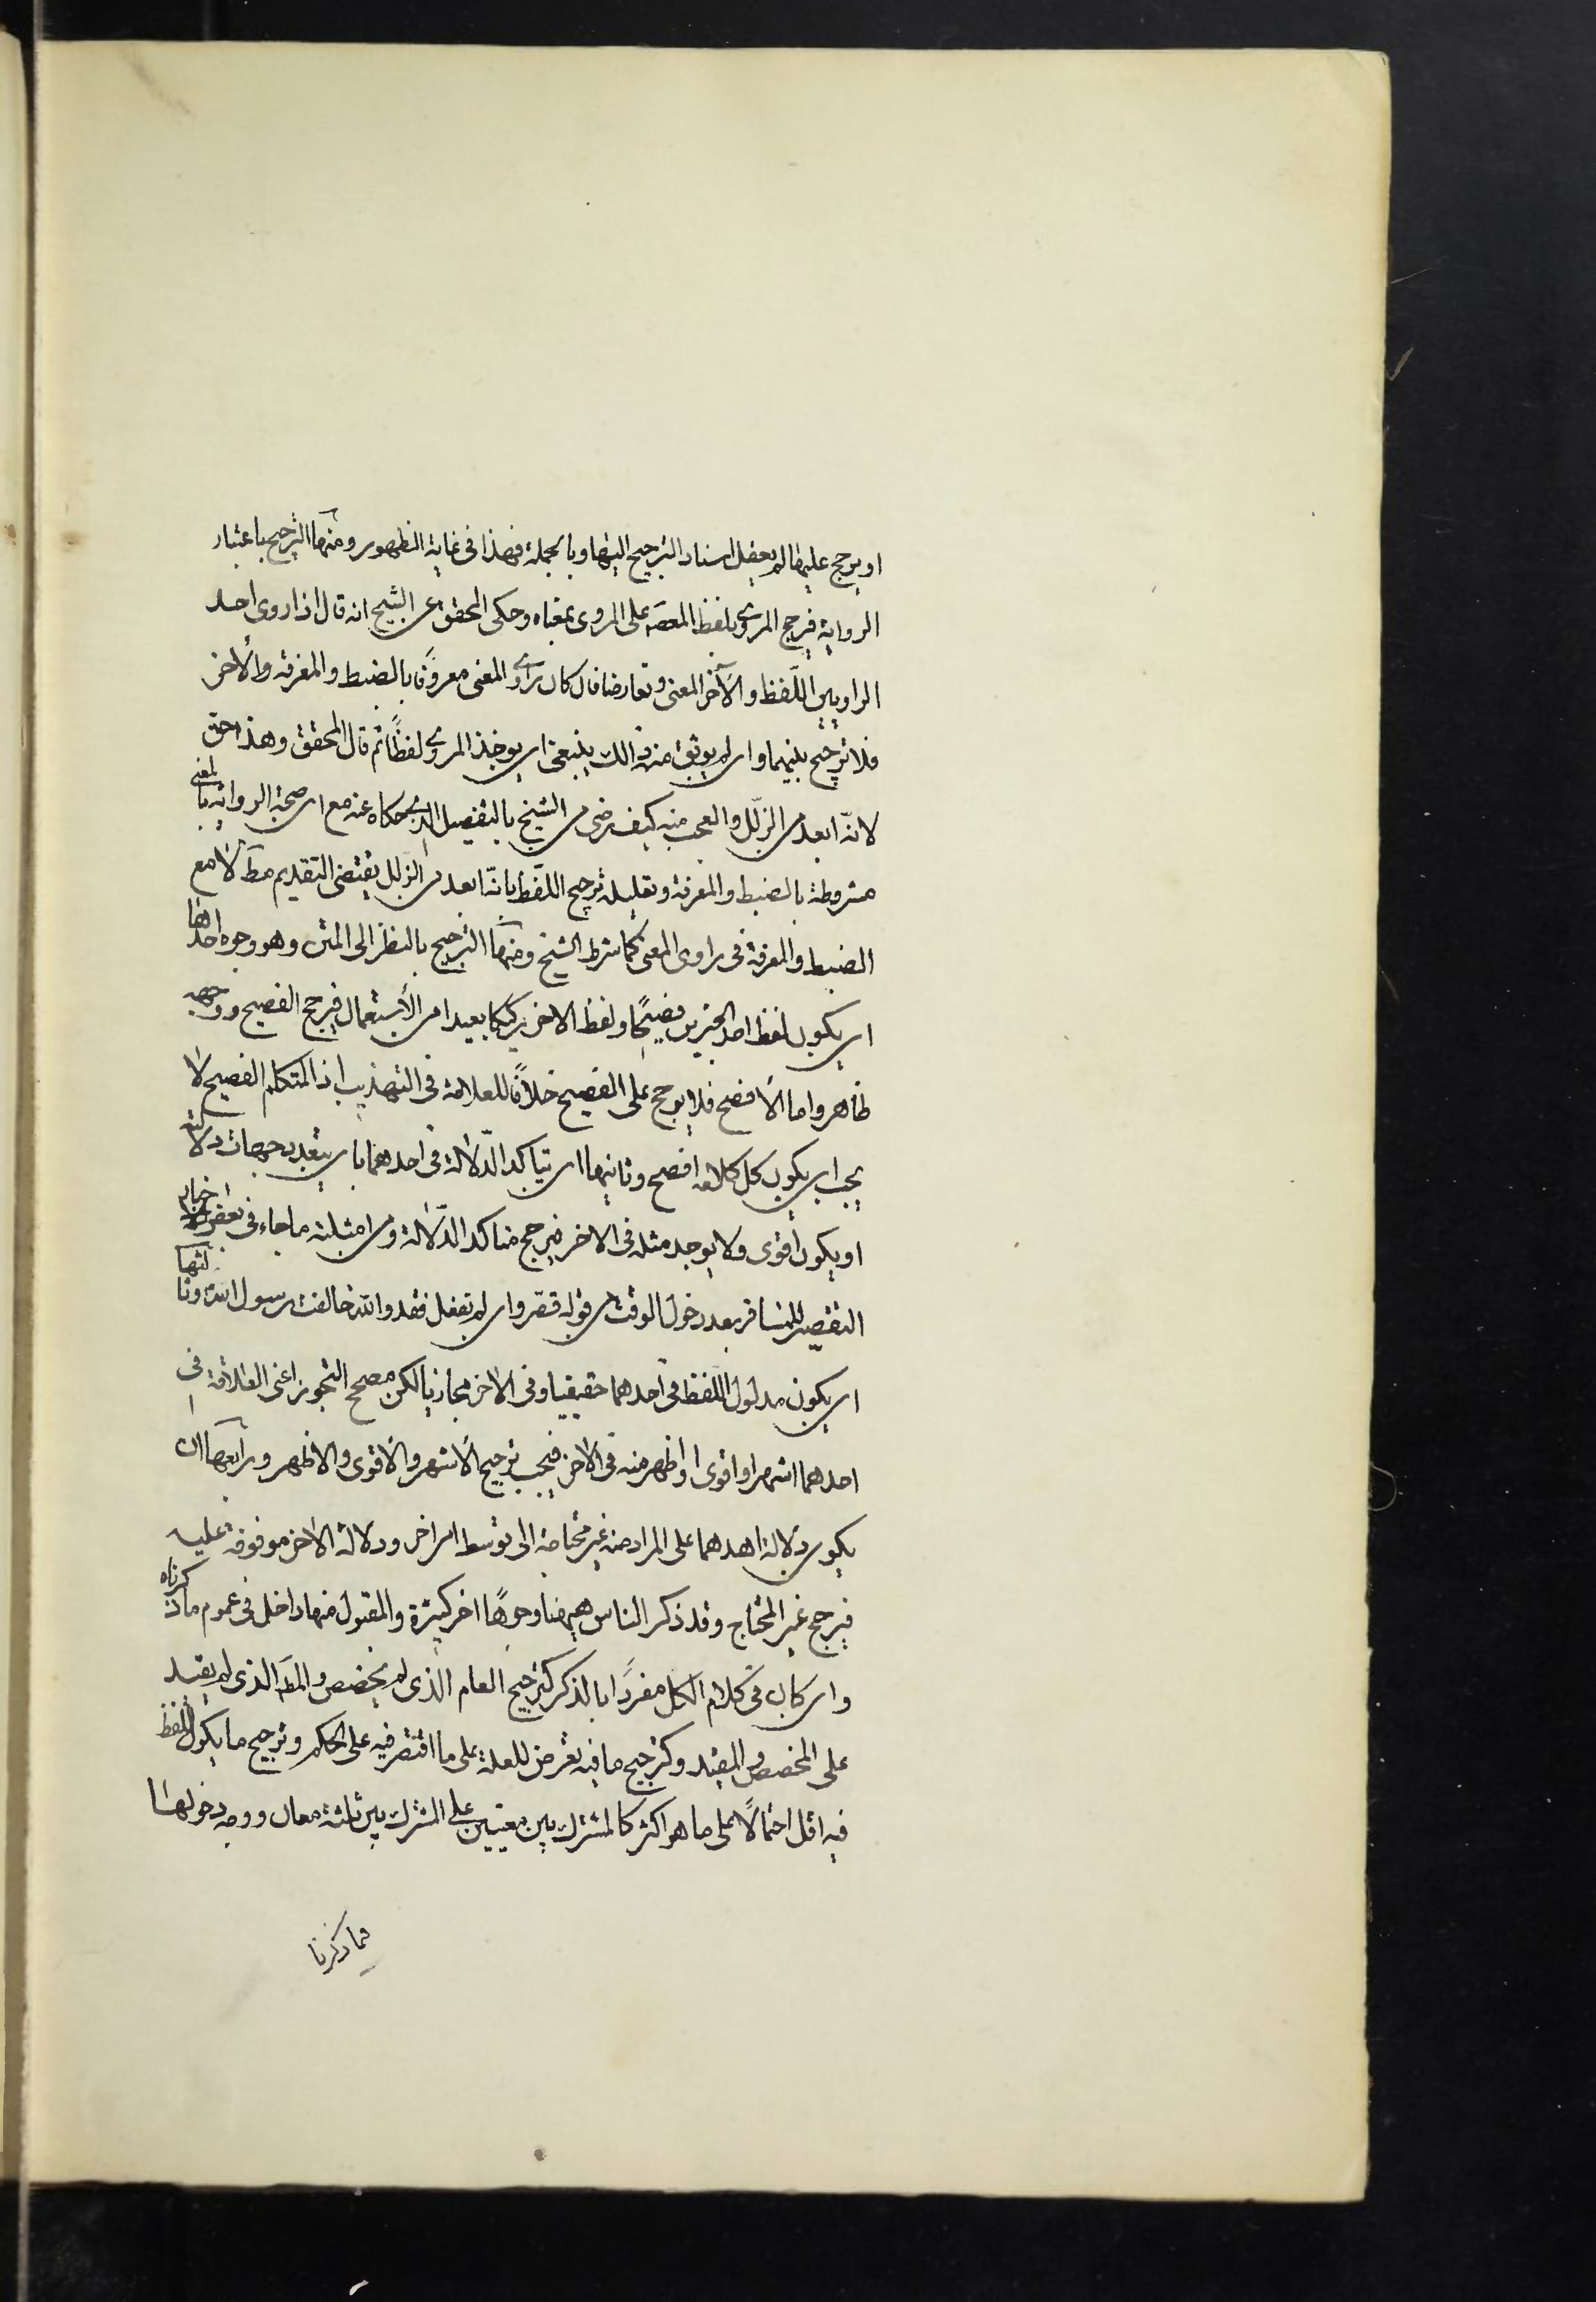 او يرجح عليها لم يعقل اسناد الترجيح اليها وبالجملة فهذا فى غاية الظهور ومنها الترجيح باعتبار
الرواية فيرجح المروى بلفظ المعصَو على المروى بمعناه وحكى المحقق عن الشيخ انه قال اذا روى احد
الراويين اللّفظ والآخر المعنى وتعارضا فان كان راوى المعنى معروفًا بالضبط والمعرفة والاخر
فلا ترجيح بينهما وان لم يوثق منه ذالك ينبغى ان يوخذ المروى لفظًا ثم قال المحقق وهذا حق
لانّه ابعد من الزلّل والعجب منه كيف رضى من الشيخ بالتفصيل الذى حكاه عنه مع ان صحة الرواية بالمعنى
مشروطة بالضبط والمعرفة وتعليله ترجيح اللّفظ بانّه ابعد من الزلل يقتضى التقديم مطَ لا مع
الضبط والمعرفة فى راوى المعنى كما شرط الشيخ ومنها الترجيح بالنظر الى المتن وهو وجوه احدها
ان يكون لفظ احد الخبرين فصيحًا ولفظ الاخر ركيكا بعيدا من الأستعمال فيرجح الفصيح ووجهه
ظاهر واما الأفصح فلا يرجح على الفصيح خلافًا للعلامة فى التهذيب اذ المتكلم الفصيح لا
يجب ان يكون كل كلامه افصح وثانيها ان يتاكد الدّلالة فى احدهما بان يتعدد جهات دلالته
او يكون أقوى ولا يوجد مثله فى الاخر فيرجح متاكد الدّلالة ومن امثلته ماجاء فى بعض اخبار
التقصير للمسافر بعد دخول الوقت من قوله قصّر وان لم تفعل فقد والله خالفت رسول الله وثالثها
ان يكون مدلول اللّفظ فى احدهما حقيقيا وفى الاخر مجازيا لكن مصحح التجوز اعنى العلاقة فى
احدهما اشهر او اقوى او اظهر منه فى الاخر فيجب ترجيح الأشهر والأقوى والاظهر ورابعها ان
يكون دلالة احدهما على المراد منه غير محتاجة الى توسط امر اخر ودلالة الاخر موقوفة عليه
فيرجح غير المحتاج وقد ذكر الناس هيهنا وجوهًا اخر كثيرة والمقبول منها داخل فى عموم ما ذكرناه
وان كان فى كلام الكل مفردًا بالذكر كترجيح العام الذى لم يخصص والمطَ الذى لم يقيد
على المخصص والمقيد وكترجيح ما فيه تعرض للعلة على ما اقتصر فيه على الحكم وترجيح ما يكون اللفظ
فيه اقل احتمالًا على ما هو اكثر كالمشترك بين معنيين على المشترك بين ثلثة معان ووجه دخولها
فما ذكرنا